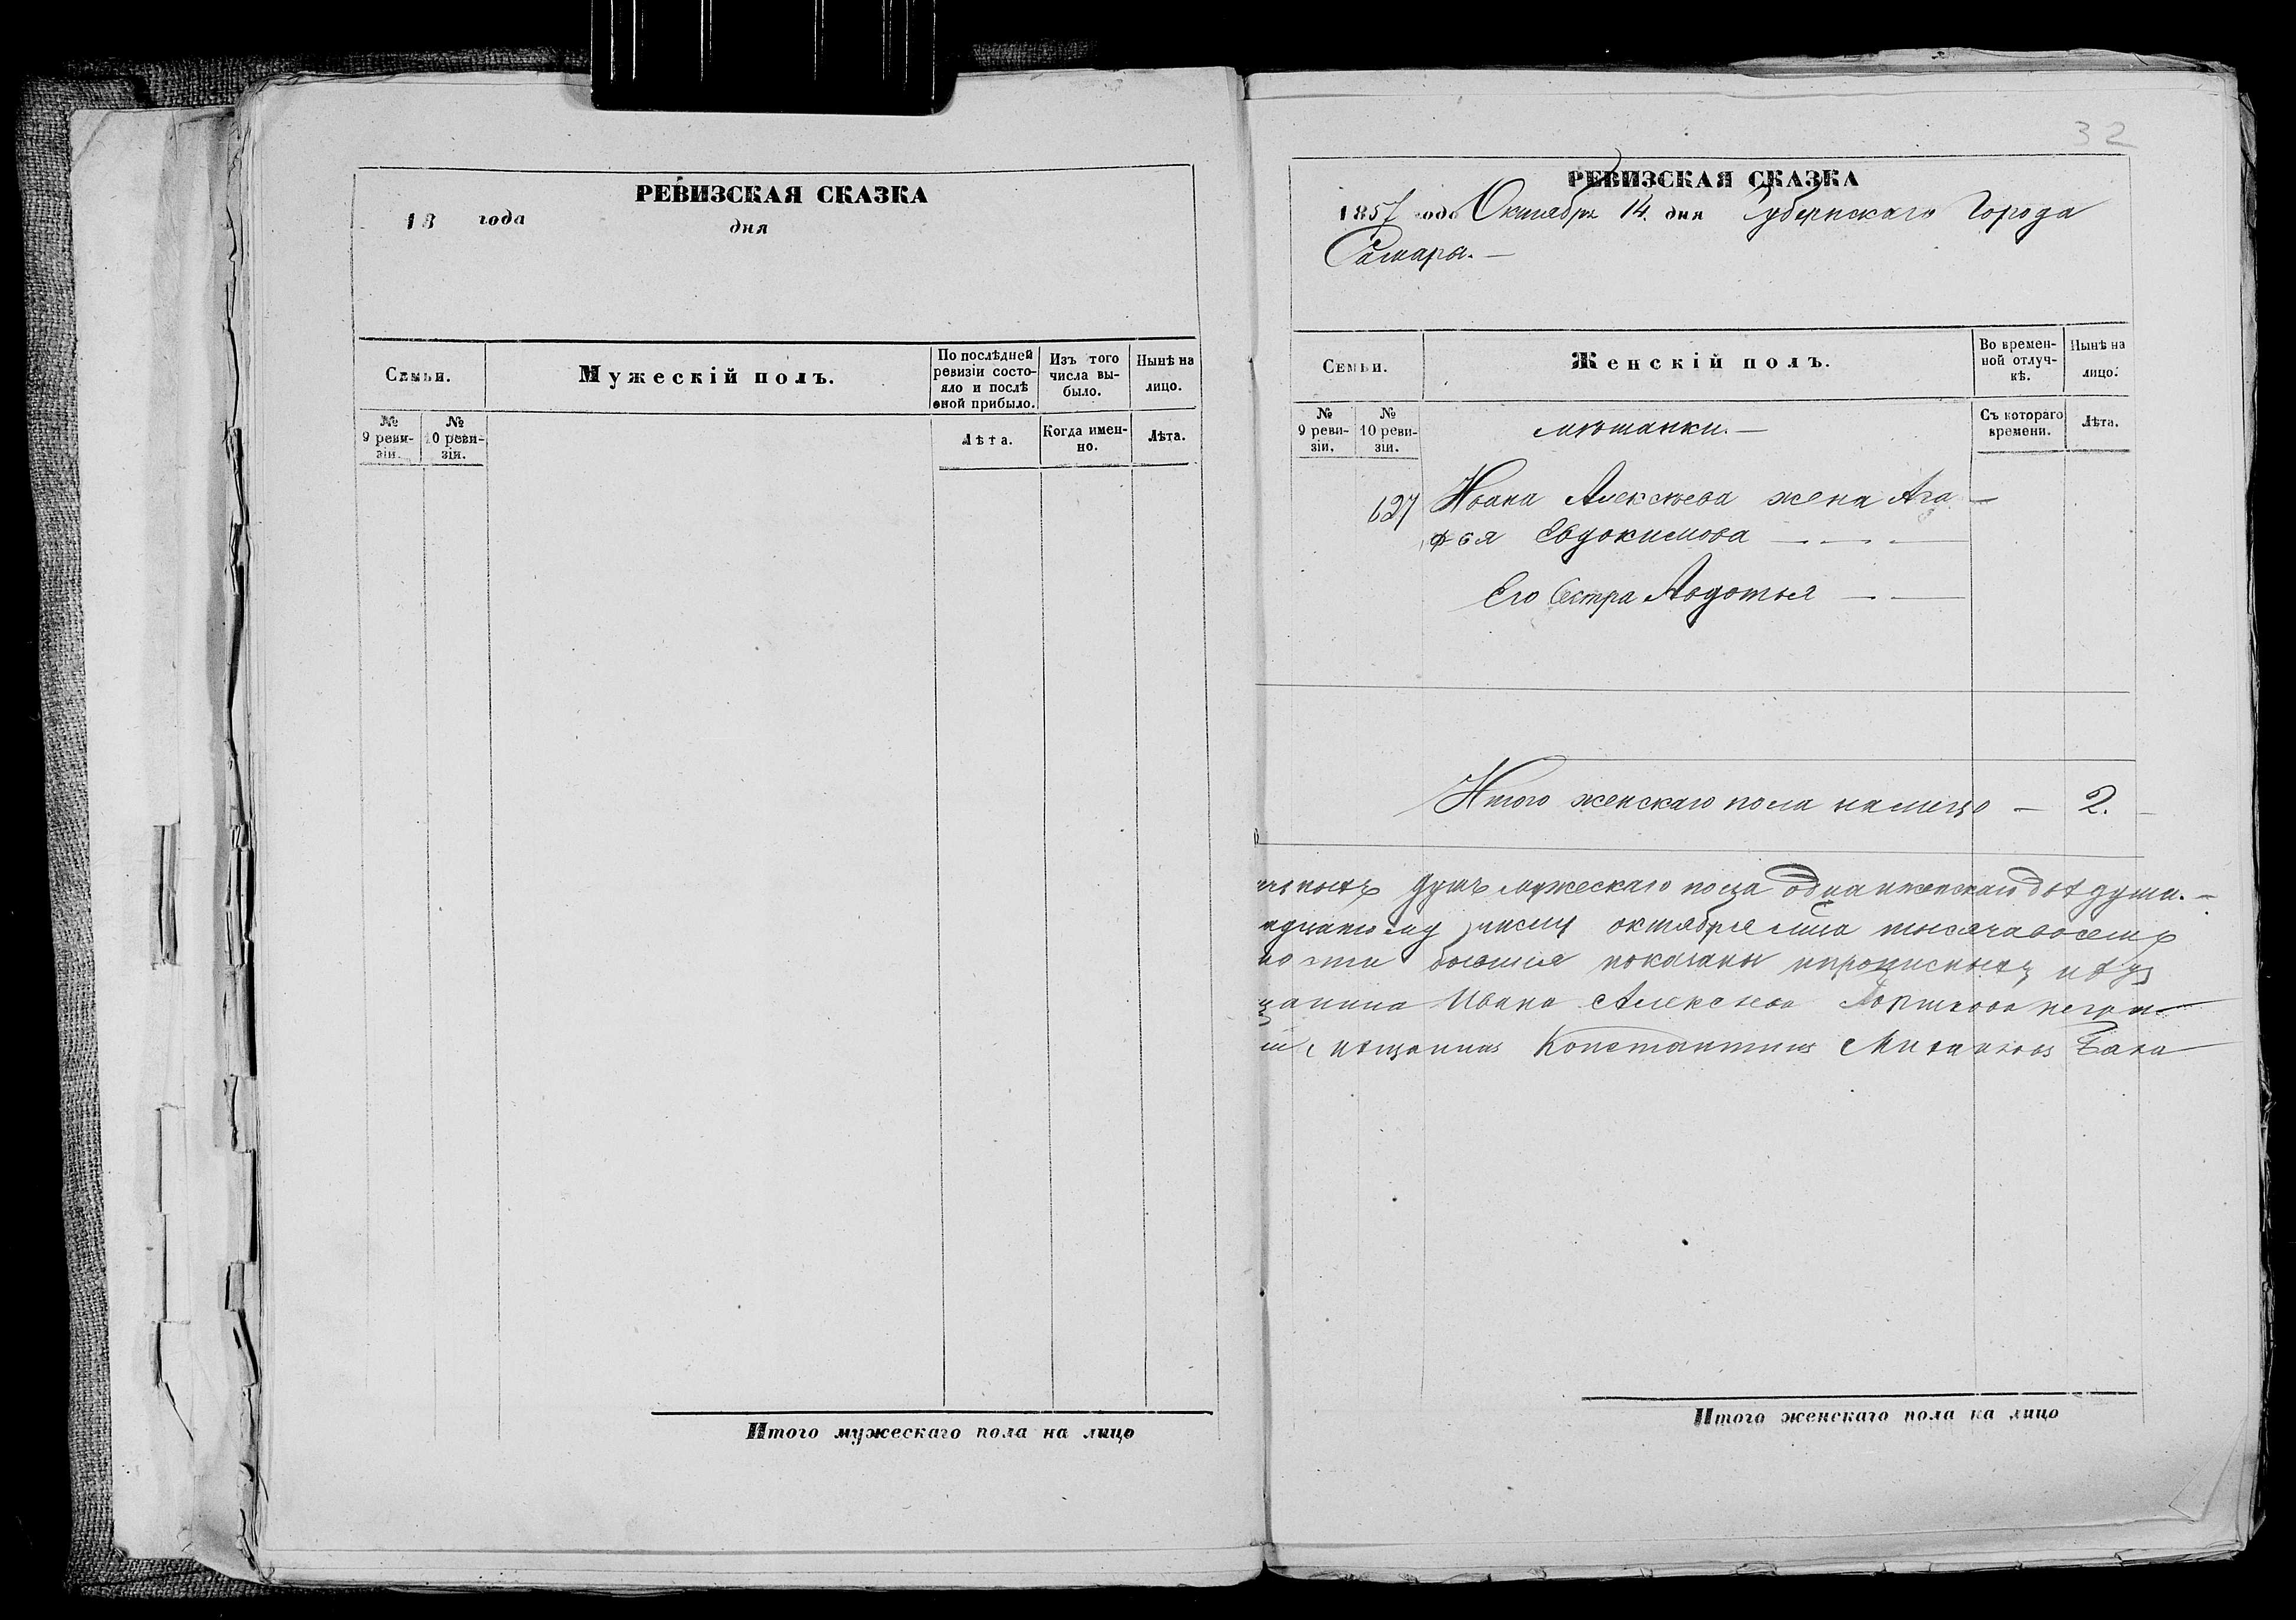 РЕВИЗСКАЯ СКАЗКА
18 года дня
Семьи.
Мужескій полъ.
По послѣдней ревизіи состо-яло и послѣ оной прибыло.
Изъ того числа вы-было.
Нынѣ на лицо.
№ 9 реви-зіи.
№ 10 реви-зіи.
Лѣта.
Когда имен-но.
Лѣта.
Итого мужескаго пола на лицо
32
РЕВИЗСКАЯ СКАЗКА
1857 года Октября 14. дня Губернскаго Города
Самары. —
Семьи.
Женскій полъ.
Во времен-ной отлуч-кѣ.
Нынѣ на лицо.
№ 9 реви-зіи.
№ 10 реви-зіи.
мѣщанки. —
Съ котораго времени.
Лѣта.
627 Ивана Алексѣева жена Ага
фья Евдокимова — — —
Его Сестра Авдотья — —
Итого женскаго пола налицо — 2.
душъ мужескаго пола одна и женскаго двѣ души. —
числу октября тысяча восемь
показаны и прописныхъ нѣтъ
Ивана Алексѣева
Константинъ
Итого женскаго пола на лицо